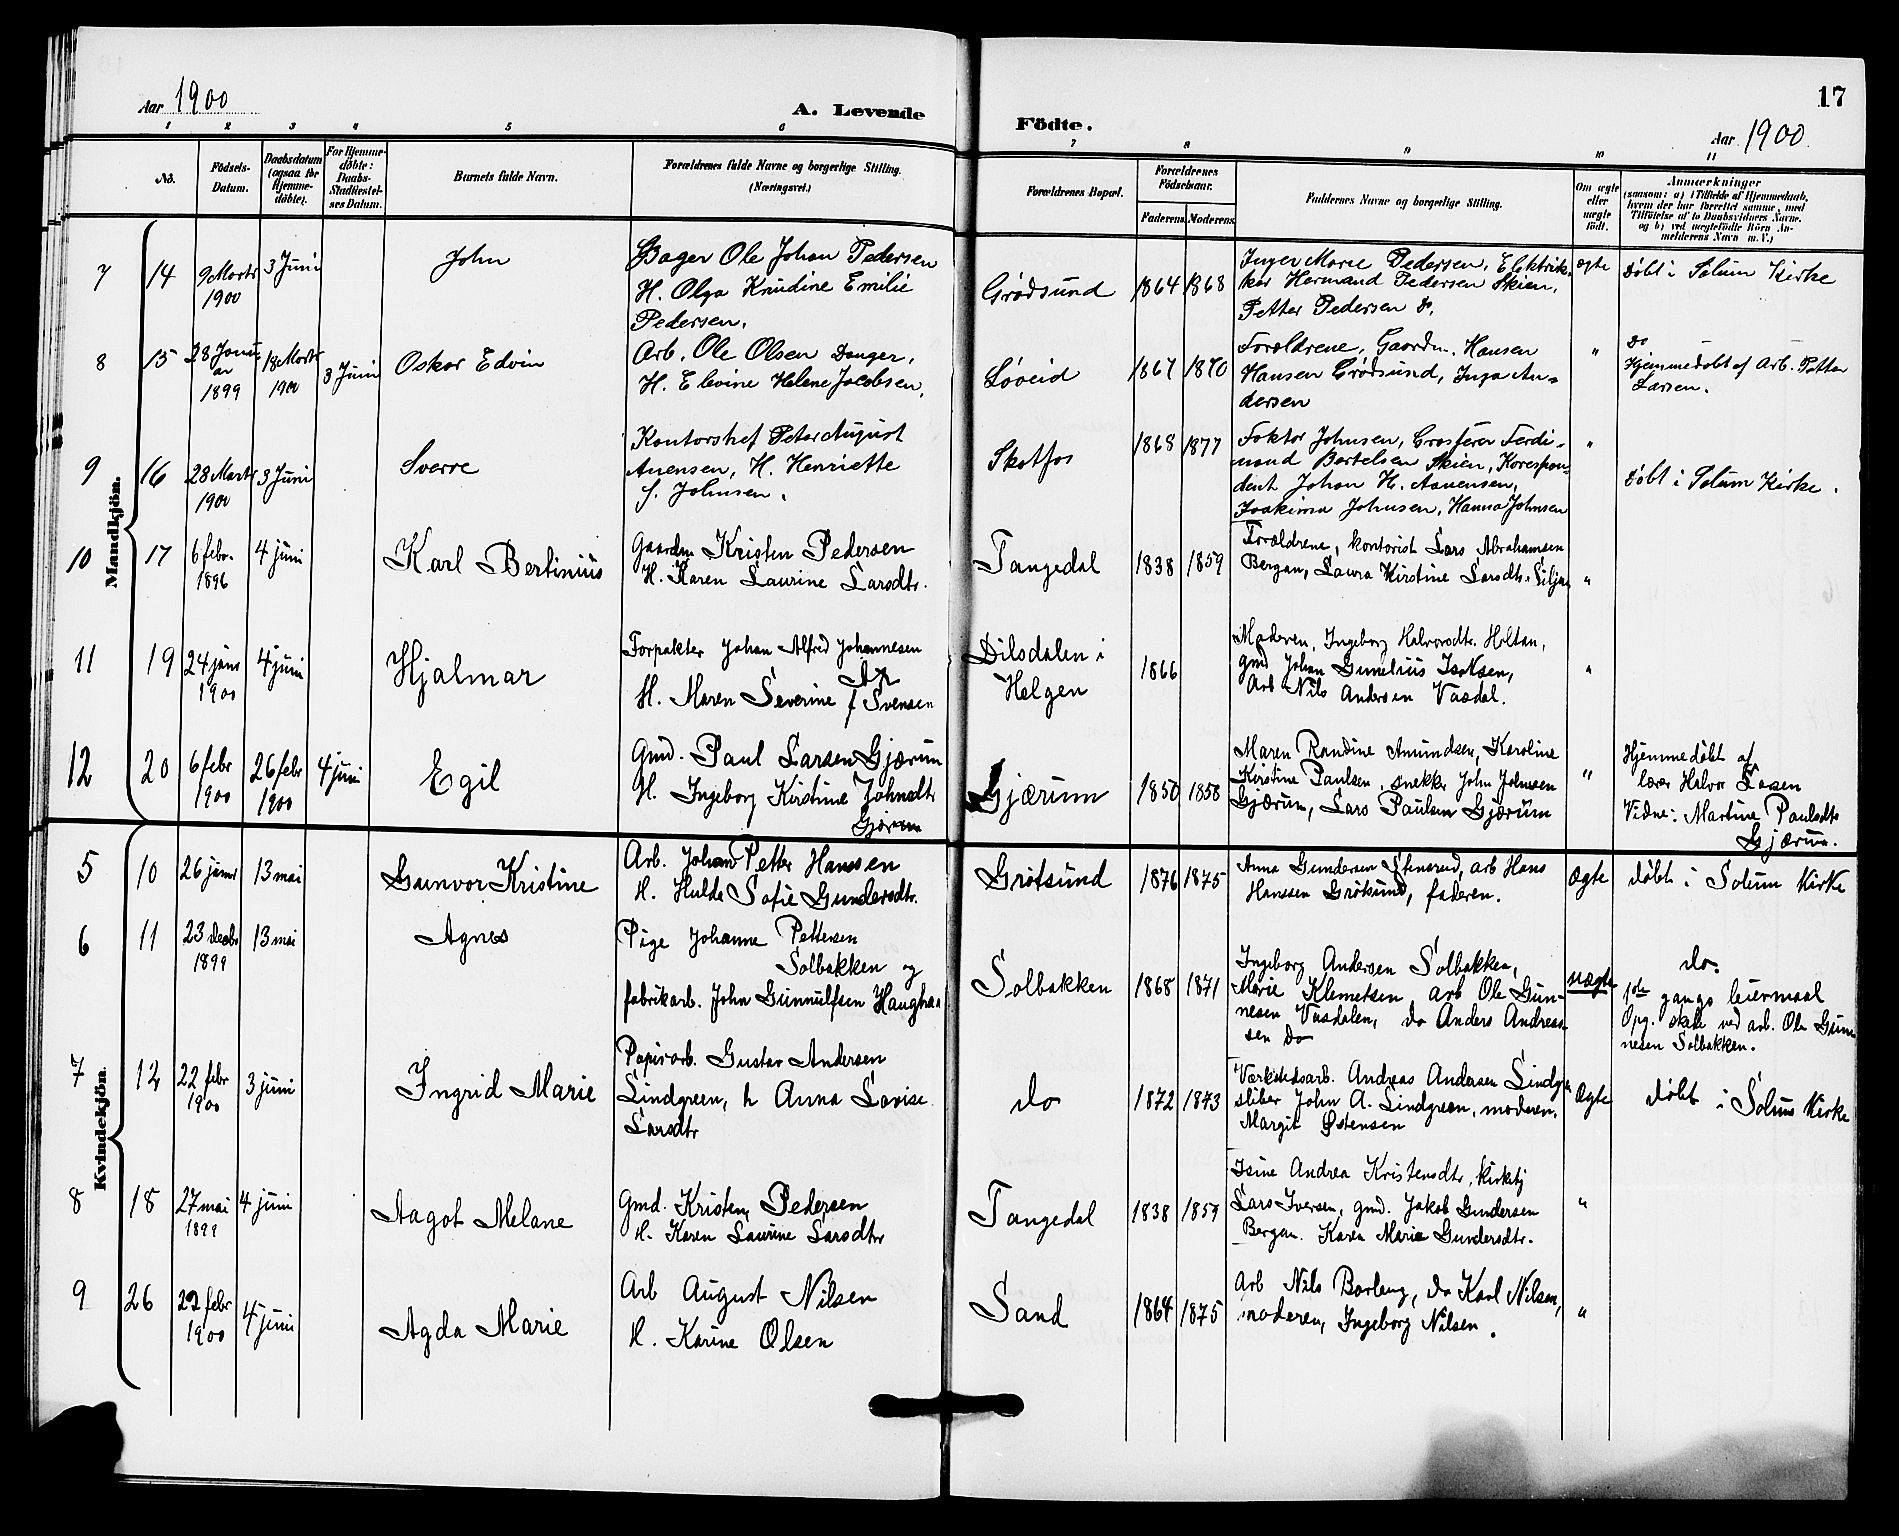 Aar 1900
A. Levende
Födte.
17
Aar 1900.
1 2 3 4 5 6 7 8 9 10 11
No.
Födsels-
Datum.
Daabsdatum
(ogsaa for
Hjemme-
döbte).
For Hjemme-
döbte:
Daabs-
Stadfæstel-
ses Datum.
Barnets fulde Navn.
Forældrenes fulde Navne og borgerlige Stilling.
(Næringsvei.)
Forældrenes Bopæl.
Forældrenes
Födselsaar.
Faderens. Moderens.
Faddernes Navne og borgerlige Stilling.
Om ægte
eller
uægte
födt.
Anmærkninger
(saasom: a) i Tilfælde af Hjemmedaab,
hvem der har forrettet samme, med
Tilföielse af to Daabsvidners Navne,
og b) ved uægtefödte Börn An-
melderens Navn m. V.)
Mandkjön.
7 14 9 Marts
1900
3 Juni
John
Bager Ole Johan Pedersen
H. Olga Knudine Emilie
Pedersen.
Grødsund 1864 1868
Inger Marie Pedersen, Elektrik-
ker Hermand Pedersen Skien,
Petter Pedersen do.
ægte
døbt i Solum Kirke
8 15 28 Janu-
ar
1899
18 Marts
1900
3 Juni
Oskar Edvin
Arb. Ole Olsen Danger,
H. Elevine Helene Jacobsen,
Løveid 1867 1870
Forældrene, Gaardm. Hansen
Hansen Grødsund, Inga An-
dersen
"
do
Hjemmedøbt af Arb. Petter
Larsen.
9 16 28 Marts
1900
3 Juni
Sverre
Kontorchef Peter August
Anensen, H. Henriette
f. Johnsen.
Skotfos 1868 1877
Faktor Johnsen, Grosserer Ferdi-
nand Bertelsen Skien, Korespon-
dent Johan H. Aanensen,
Joakima Johnsen, Hanna Johnsen
"
døbt i Solum Kirke.
10 17 6 febr.
1896
4 juni
Karl Bertinius
Gaardm Kristen Pedersen
H. Karen Laurine Larsdtr.
Tangedal 1838 1859
Forældrene, kontorist Lars Abrahamsen
Bergan, Laura Kirstine Larsdtr. Siljan
"
11 19 24 jans
1900
4 juni
Hjalmar
Forpakter Johan Alfred Johannesen
H. Maren Severine f Svensen
Dilsdalen i
Helgen
1866
Moderen, Ingeborg Halvorsdtr. Holtan,
gmd Johan Gunelius Isaksen,
Arb Nils Andersen Vasdal.
"
12 20 6 febr
1900
26 febr
1900
4 juni
Egil
Gmd. Paul Larsen Gjærum
H. Ingeborg Kirstine Johnsdtr
Gjærum
Gjærum 1850 1858
Maren Randine Amundsen, Karoline
Kirstine Paulsen, snekker John Johnsen
Gjærum, Lars Paulsen Gjærum
"
Hjemmedøbt af
lærer Halvor Låsen
Vidne: Martine Paulsdtr
Gjærum.
Kvindekjön.
5 10 26 januar 13 mai
Gunvor Kristine
Arb. Johan Petter Hanssen
H. Hulda Sofie Gundersdtr.
Grøtsund 1876 1875
Anna Gundersen Stensrud, arb Hans
Hanssen Grøtsund, faderen.
ægte
døbt i Solum Kirke
6 11 23 decbr
1899
13 mai
Agnes
Pige Johanne Pettersen
Solbakken og
fabrikarb. John Gunnulfsen Haughaa
Solbakken 1868 1871
Ingeborg Andersen Solbakken,
Marie Klemetsen, arb Ole Gun-
nesen Vasdalen, do Anders Andreas-
sen do
uægte
do.
1ste gangs leiermaal
Opg. skete ved arb. Ole Gun-
nesen Solbakken.
7 12 22 febr
1900
3 juni
Ingrid Marie
Papirarb. Gustav Andersen
Lindgreen, h Anna Lovise
Larsdtr
do 1872 1873
Værkstedsarb. Andreas Andersen Lindgr
sliber John A. Lindgreen, moderen,
Margit Østensen
Ægte
døbt i Solum Kirke
8 18 27 mai
1899
4 juni
Aagot Melane
Gmd. Kristen Pedersen
H. Karen Laurine Larsdtr
Tangedal 1838 1859
Isine Andrea Kristensdtr, kirketj
Lars Iversen, gmd. Jakob Gundersen
Bergan. Karen Marie Gundersdtr.
"
9 26 22 febr
1900
4 juni
Agda Marie
Arb August Nilsen
H. Karine Olsen
Sand 1864 1875
Arb Nils Borlaug, do Karl Nilsen,
moderen, Ingeborg Nilsen.
"